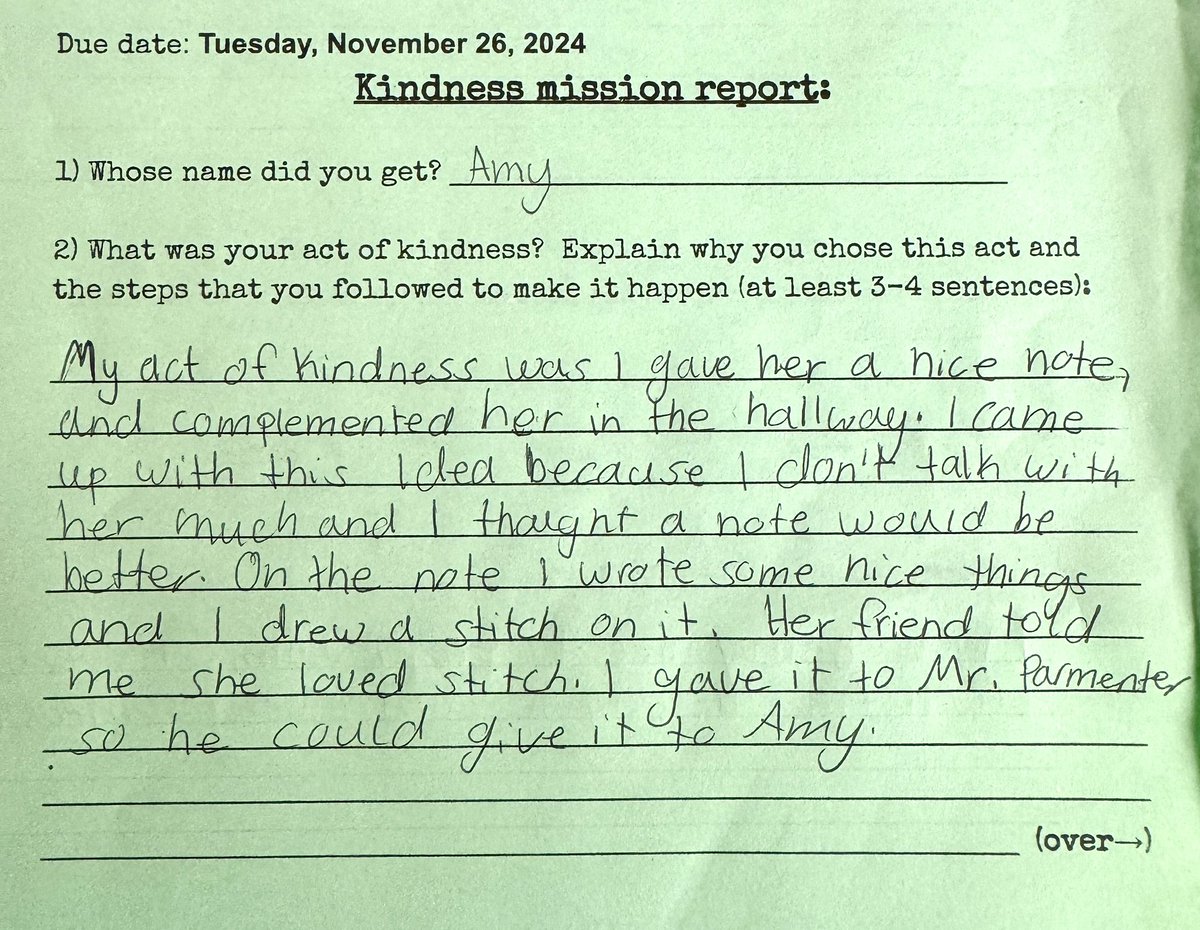 Due date: Tuesday, November 26, 2024
Kindness mission report:
1) Whose name did you get? Amy
2) What was your act of kindness? Explain why you chose this act and
the steps that you followed to make it happen (at least 3-4 sentences):
My act of kindness was I gave her a nice note,
and complemented her in the hallway. I came
up with this Idea because I don't talk with
her much and I thought a note would be
better. On the note I wrote some nice things
and I drew a stitch on it. Her friend told
me she loved stitch. I gave it to Mr. Parmenter
so he could give it to Amy.
(over→)